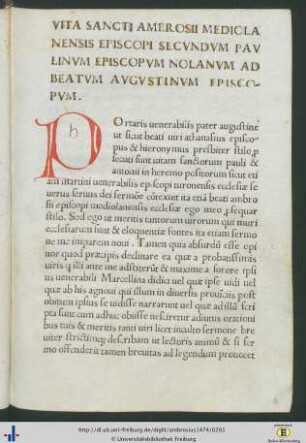 VITA SANCTI AMBROSII MEDIOLA
NENSIS EPISCOPI SECVNDVM PAV
LINVM EPISCOPVM NOLANVM AD
BEATVM AVGVSTINVM EPISCO-
PVM.
h
Ortaris uenerabilis pater augustine
ut sicut beati uiri athanasius episco-
pus & hieronymus presbiter stilo
secuti sunt uitam sanctorum pauli &
antonii in heremo positorum sicut eti
am martini uenerabilis episcopi turonensis ecclesiæ se
uerus seruus dei texuit ita etiā beati ambro
sii episcopi mediolanensis ecclesiæ ego meo
stilo. Sed ego ut meritis tantorum uirorum qui muri
ecclesiarum sunt & eloquentiæ fontes ita etiam sermo
ne me imparem noui. Tamen quia absurdū esse opi
nor quod præcipis declinare ea quæ a probatissimis
uiris qui ante me & maxime a sorore ipsi
us uenerabili Marcellina didici uel quæ ipse uidi uel
quæ ab his agnoui qui illum in diuersis prouinciis post
obitum ipsius se uidisse narrarunt uel quæ ad illū scri
pta sunt cum adhuc obisse nesciretur adiutus orationi
bus tuis & meritis tanti uiri licet inculto sermone bre
uiter strictimque describam ut lectoris animū & si ser
mo offenderit tamen breuitas ad legendum prouocet
http://dl.ub.uni-freiburg.de/diglit/ambrosius1474/0201
© Universitätsbibliothek Freiburg